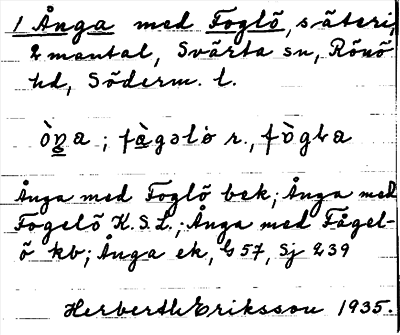 1 Ånga med Foglö, säteri,
2 mantal, Svärta sn, Rönö
hd, Söderm. l.
òŋa ; fàgəlö r., fògla
Ånga med Foglö bek; Ånga med
Fogelö K.S.L.; Ånga med Fågel-
ö kb; Ånga ek, G 57, Sj 239
Herberth Eriksson 1935.